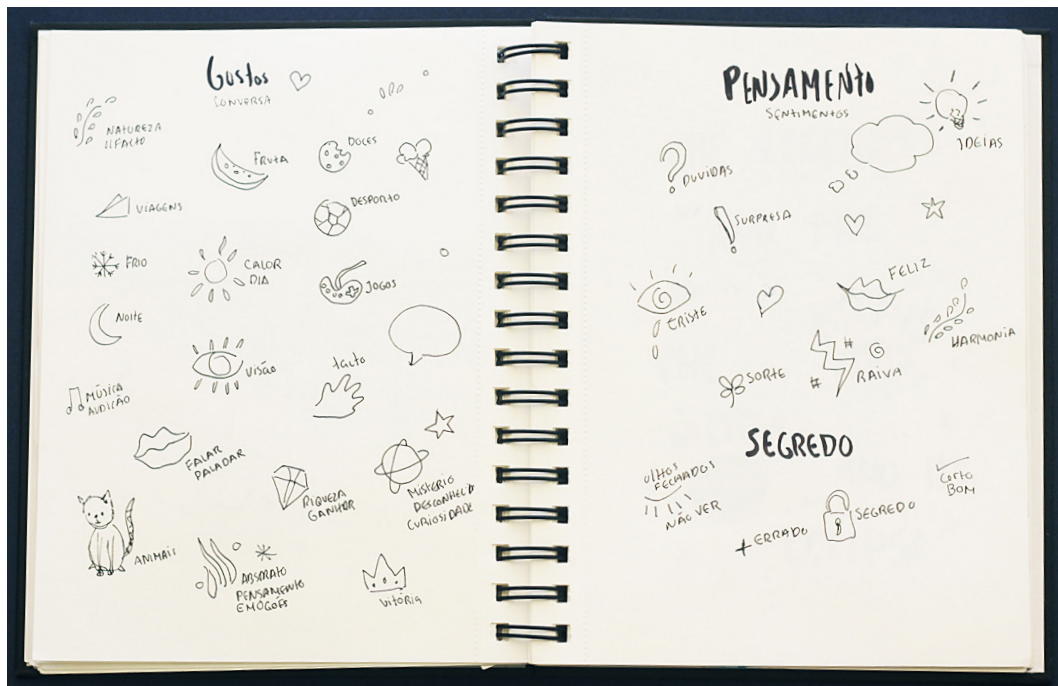 Gostos
CONVERSA
NATUREZA
OLFACTO
FRUTA
DOCES
VIAGENS
DESPORTO
FRIO
CALOR
DIA
JOGOS
NOITE
VISÃO
tacto
MÚSICA
AUDIÇÃO
FALAR
PALADAR
RIQUEZA
GANHAR
MISTÉRIO
DESCONHECIDO
CURIOSIDADE
ANIMAIS
ABSTRATO
PENSAMENTO
EMOÇÕES
VITÓRIA
PENSAMENTO
SENTIMENTOS
IDEIAS
?
DUVIDAS
!
SURPRESA
TRISTE
FELIZ
HARMONIA
SORTE
#
#
RAIVA
SEGREDO
OLHOS
FECHADOS
NÃO VER
CERTO
BOM
ERRADO
SEGREDO